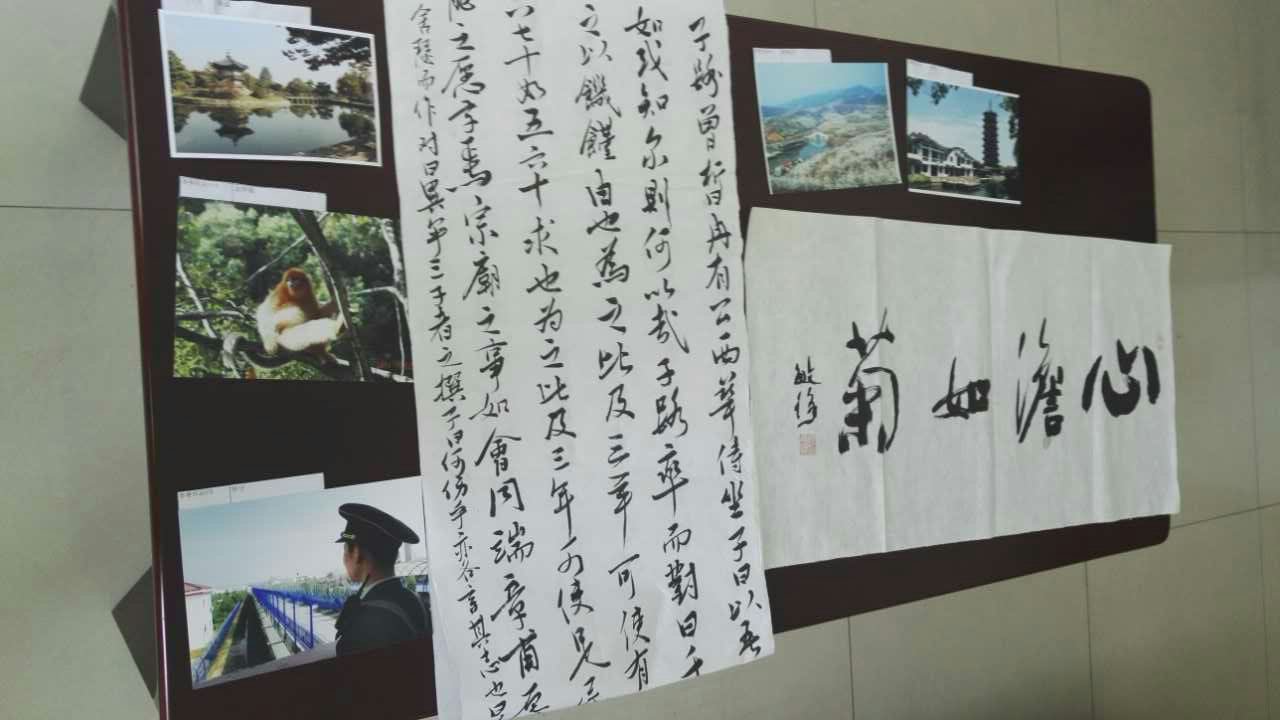 心澹如菊
子路曾皙冉有公西華侍坐子曰以吾
如或知尔則何以哉子路率而對曰千
之以饑饉由也為之比及三年可使有
六七十如五六十求也为之比及三年可使民
能之愿学焉宗廟之事如會同端章甫愿
舍瑟而作对曰異乎三子者之撰子曰何伤乎亦各言其志也曰